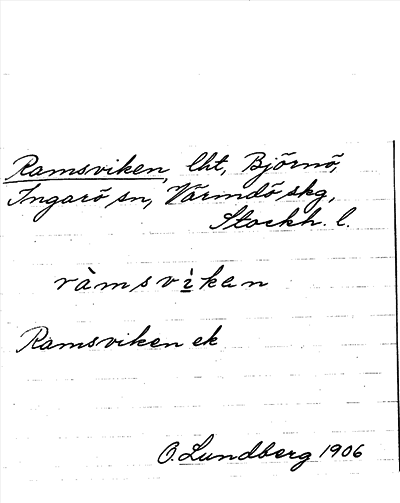 Ramsviken, lht, Björnö,
Ingarö sn, Värmdö skg,
Stockh. l.
ràmsvi̲kan
Ramsviken ek
O. Lundberg 1906